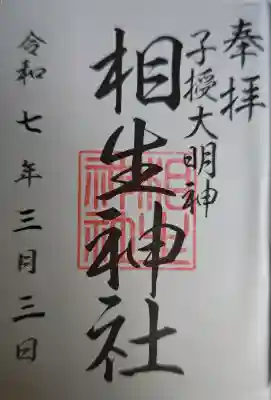 奉拝
子授大明神
相生神社
令和七年三月三日